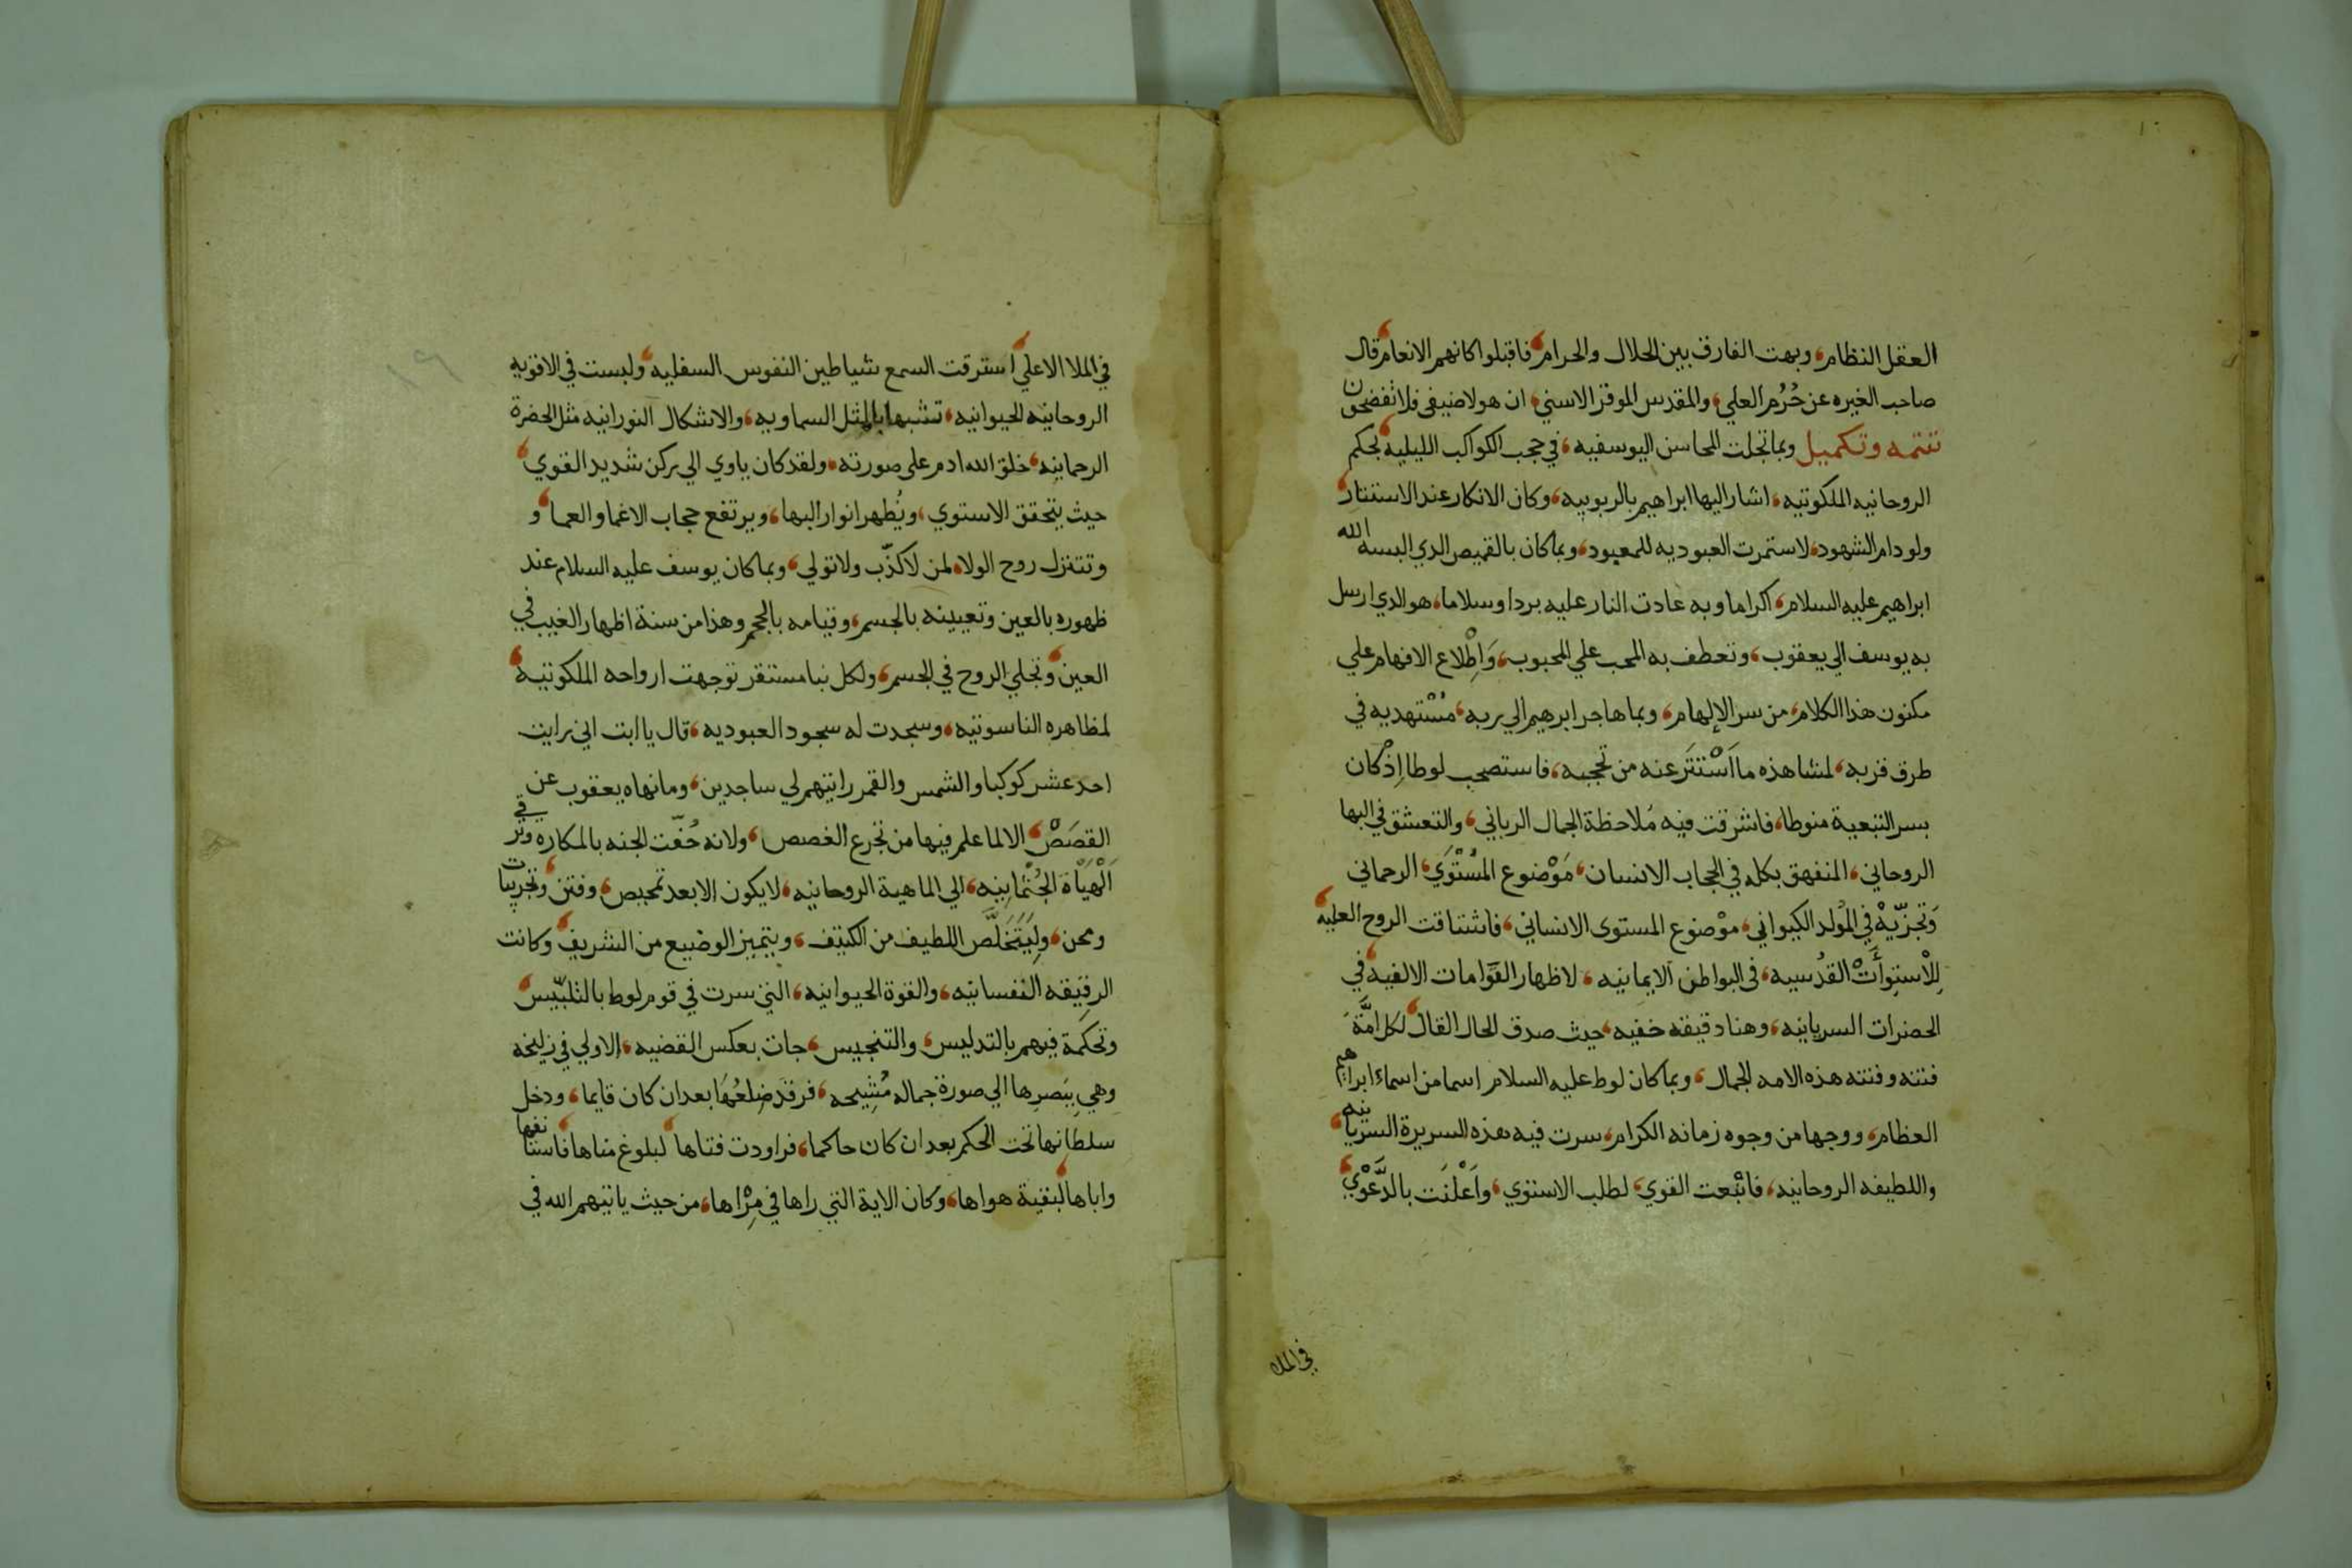 العقل النظام، وبهت الفارق بين الحلال والحرام، فاقبلوا كانهم الانعام، قال
صاحب الخيره عن حُرُم العلي، والمقدس الموقر الاسني، ان هولا ضيفى فلا تفضحون
تتمه وتكميل وبما تجلت المحاسن اليوسفيه، في حجب الكواكب الليليه، بحكم
الروحانيه الملكوتيه، اشار اليها ابراهيم بالربوبيه، وكان الانكار عند الاستتار،
ولو دام الشهود، لاستمرت العبوديه للمعبود، وبما كان بالقميص الذي البسه الله
ابراهيم عليه السلام، اكراما وبه عادت النار عليه بردا وسلاما، هو الذي ارسل
به يوسف الي يعقوب، وتعطف به المحب علي المحبوب، وَاطْلاع الافهام علي
مكنون هذا الكلام، من سر الإلهام، وبما هاجر ابرهيم الي ربه، مُسْتهديه في
طرق قربه، لمشاهذه ما اَسْتتَر عنه من تحجبه، فاستصحب لوطا اِذْ كان
بسر التبعية منوطا، فاشرقت فيه مُلاحظة الجمال الرباني، والتعشق في البها
الروحاني، المنفهق بكله في الحجاب الانسان، مَوْضوع المسْتَوَي، الرحماني
وَتجزّيهْ في المْولد الكيواني، موْضوع المستوى الانساني، فاشتاقت الروح العليه،
لِلْاستِوأَتْ القدُسيه، فى البواطن الايمانيه، لاظهار القوَّامات الالفيه، في
الحضرات السريانيه، وهنا دقيقه خفيه، حيث صدق الحال القال، لكل امَّة
فتنه وفتنه هذه الامه الجمال، وبما كان لوط عليه السلام اسما من اسماء ابراهيم
العظام، ووجها من وجوه زمانه الكرام، سرت فيه هذه السريرة السريانيه،
واللطيفه الروحانيه، فاتْبعت القوي، لطلب الاستوي، واَعْلنَت بالدَّعْوي،
في الملا
في الملا الاعلي، استرقت السمع شياطين النفوس السفليه، ولبست في الافويه
الروحانيه الحيوانيه، تشبها بالمثل السماويه، والاشكال النورانيه مثل الحضرة
الرحمانيه، خلق الله ادم على صورته، ولقد كان ياوي الي ركن شديد القوي،
حيث يتحقق الاستوي، ويُظهر انوار البها، ويرتفع حجاب الاغما والعما، و
وتتنزل روح الولا، لمن لا كذّب ولا تولي، وبما كان يوسف عليه السلام عند
ظهوره بالعين وتعيينه بالجسم، وقيامه بالحجم وهذا من سنة اظهار الغيب في
العين، وتجلي الروح في الجسم، ولكل نبا مستقر توجهت ارواحه الملكوتيه،
لمظاهره الناسوتيه، وسجدت له سجود العبوديه، قال يا ابت اني رايت
احد عشر كوكبا والشمس والقمر رايتهم لي ساجدين، وما نهاه يعقوب عن
القصَصْ، الا لما علم فيها من تجرع الغصص، ولانه حُفّت الجنه بالمكاره وترقي
اَلْهَيَأة الجُثمانيه، الي الماهية الروحانيه، لا يكون الا بعد تمحيص، وفتن، وتجريبات
ومحن، ولِيَتَخلَّص اللطيف من الكثيف، ويتميز الوضيع من الشريف، وكانت
الرقيقه النفسانيه، والقوة الحيوانيه، التي سرت في قوم لوط بالتلبّيس،
وتحكمَة فيهم بالتدليس، والتنجيس، جات بعكس القضيه، الاولي في زليخه
وهي ببَصرها الي صورة جماله مُشِيحه، فرقد ضلعُهَا بعد ان كان قايما، ودخل
سلطانها تحت الحكم بعد ان كان حاكما، فراودت فتاها، لبلوغ مناها، فاستا نفها
واباها، لبقية هواها، وكان الاية التي راها في مِرْاها، من حيث ياتيهم الله في